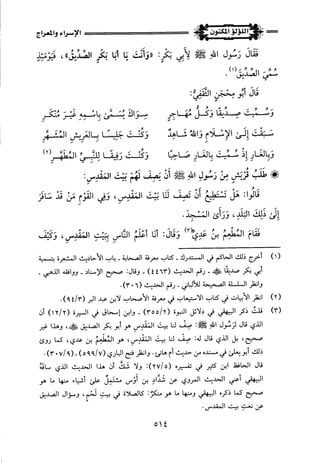 اللؤلؤ المكنون
الإسراء والمعراج
فَقَالَ رَسُولُ اللهِ ﷺ لِأَبِي بَكْرٍ: «وَأَنْتَ يَا أَبَا بَكْرٍ الصِّدِّيقُ»، فَيَوْمَئِذٍ
سُمِّيَ الصِّدِّيقَ(١).
قَالَ أَبُو مِحْجَنٍ الثَّقَفِيُّ:
وَسُمِّيتَ صِدِّيقًا وَكُلُّ مُهَاجِرٍ سِوَاكَ يُسَمَّى بِاسْمِهِ غَيْرَ مُنْكَرِ
سَبَقْتَ إِلَى الإِسْلَامِ وَاللهُ شَاهِدٌ وَكُنْتَ جَلِيسًا بِالعَرِيشِ المُشَهَّرِ
وَبِالغَارِ إِذْ سُمِّيتَ بِالغَارِ صَاحِبًا وَكُنْتَ رَفِيقًا لِلنَّبِيِّ المُطَهَّرِ(٢)
❋ طَلَبُ قُرَيْشٍ مِنْ رَسُولِ اللهِ ﷺ أَنْ يَصِفَ لَهُمْ بَيْتَ المَقْدِسِ:
قَالُوا: هَلْ تَسْتَطِيعُ أَنْ تَصِفَ لَنَا بَيْتَ المَقْدِسِ، وَفِي القَوْمِ مَنْ قَدْ سَافَرَ
إِلَى ذَلِكَ البَلَدِ، وَرَأَى المَسْجِدَ.
فَقَامَ المُطْعِمُ بنُ عَدِيٍّ(٣) وَقَالَ: أَنَا أَعْلَمُ النَّاسِ بِبَيْتِ المَقْدِسِ، وَكَيْفَ
(١) أخرج ذلك الحاكم في المستدرك - كتاب معرفة الصحابة - باب الأحاديث المشعرة بتسمية
أبي بكر صديقًا ﷺ - رقم الحديث (٤٤٦٣) - وقال: صحيح الإسناد - ووافقه الذهبي -
وانظر السلسلة الصحيحة للألباني - رقم الحديث (٣٠٦).
(٢) انظر الأبيات في كتاب الاستيعاب في معرفة الأصحاب لابن عبد البر (٩٤/٣).
(٣) قلتُ ذكر البيهقي في دلائل النبوة (٣٥٥/٢) - وابن إسحاق في السيرة (١٢/٢) أن
الذي قال لرسُول الله ﷺ: صِف لنا بيت المَقْدِس هو أبو بكر الصديق، وهذا غير
صحيح، بل الذي قال له: صِف لنا بيت المَقْدِس، هو المطْعِمُ بن عدي، كما روى
ذلك أبو يعلى في مسنده من حديث أم هانئ - وانظر فتح الباري (٥٩٩/٧) - (٣٠٧/٩).
قال الحافظ ابن كثير في تفسيره (٢٧/٥): ولا شَكَّ أن هذا الحديث الذي ساقَهُ
البيهقي أعني الحديث المروي عن شَدَّاد بن أَوْس مشتَمِلٌ على أشياء منها ما هو
صحيح كما ذكره البيهقي ومنها ما هو منكرٌ: كالصلاة في بيت لَحْم، وسؤال الصديق
عن نعتِ بيت المقدس.
٥١٤